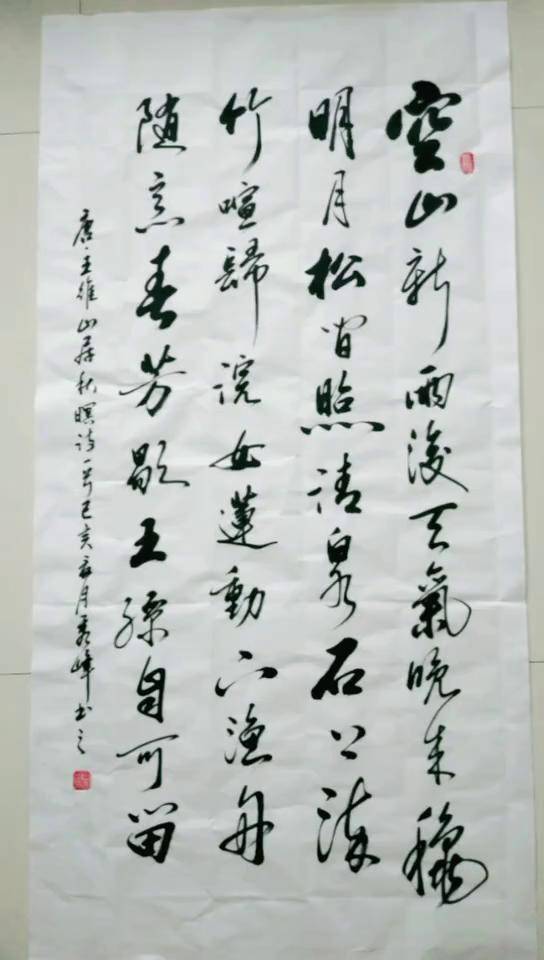 空山新雨後天氣晚来穐
明月松间照清泉石上流
竹喧歸浣女蓮動下漁舟
随意春芳歇王孫自可留
唐王维山居秋暝诗一首己亥六月秀峰书之